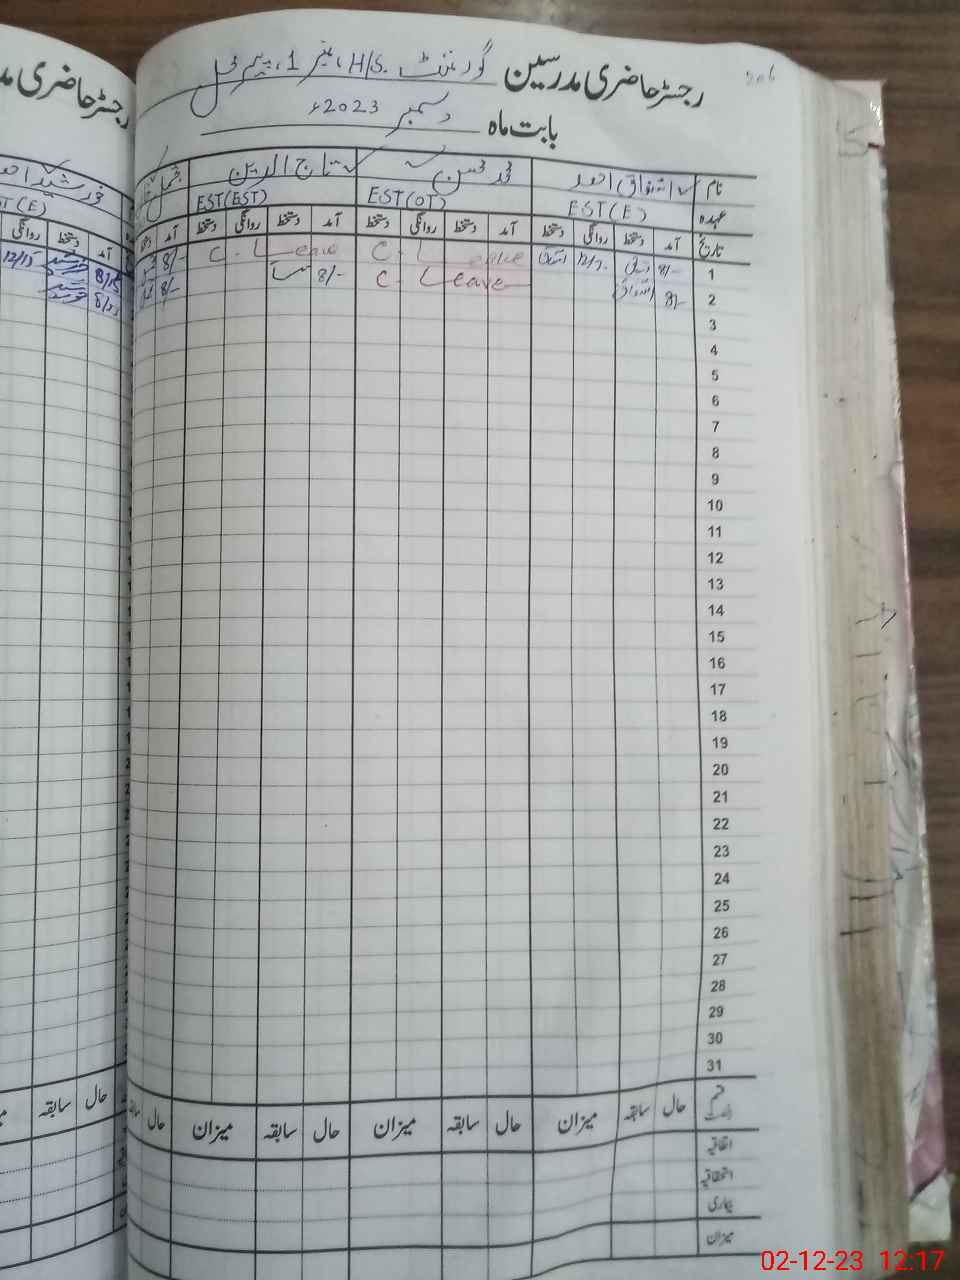 206
رجسٹر حاضری مدرسین گورنمنٹ H/S. نمبر 1، پیر محل
بابت ماہ دسمبر 2023ء
رجسٹر حاضری
نام اشتیاق احمد محمد محسن تاج الدین
عہدہ EST(E) EST(OT) EST(EST)
تاریخ آمد دستخط روانگی دستخط آمد دستخط روانگی دستخط آمد دستخط روانگی دستخط آمد
1 8/- C. Leave C. Leave 8/-
2 8/- C. Leave 8/- 8/-
3
4
5
6
7
8
9
10
11
12
13
14
15
16
17
18
19
20
21
22
23
24
25
26
27
28
29
30
31
قسم حال سابقہ میزان حال سابقہ میزان حال سابقہ میزان حال
اتفاقیہ
استحقاقیہ
بیماری
میزان
خورشید احمد
(E)
آمد دستخط روانگی
حال سابقہ
02-12-23 12:17